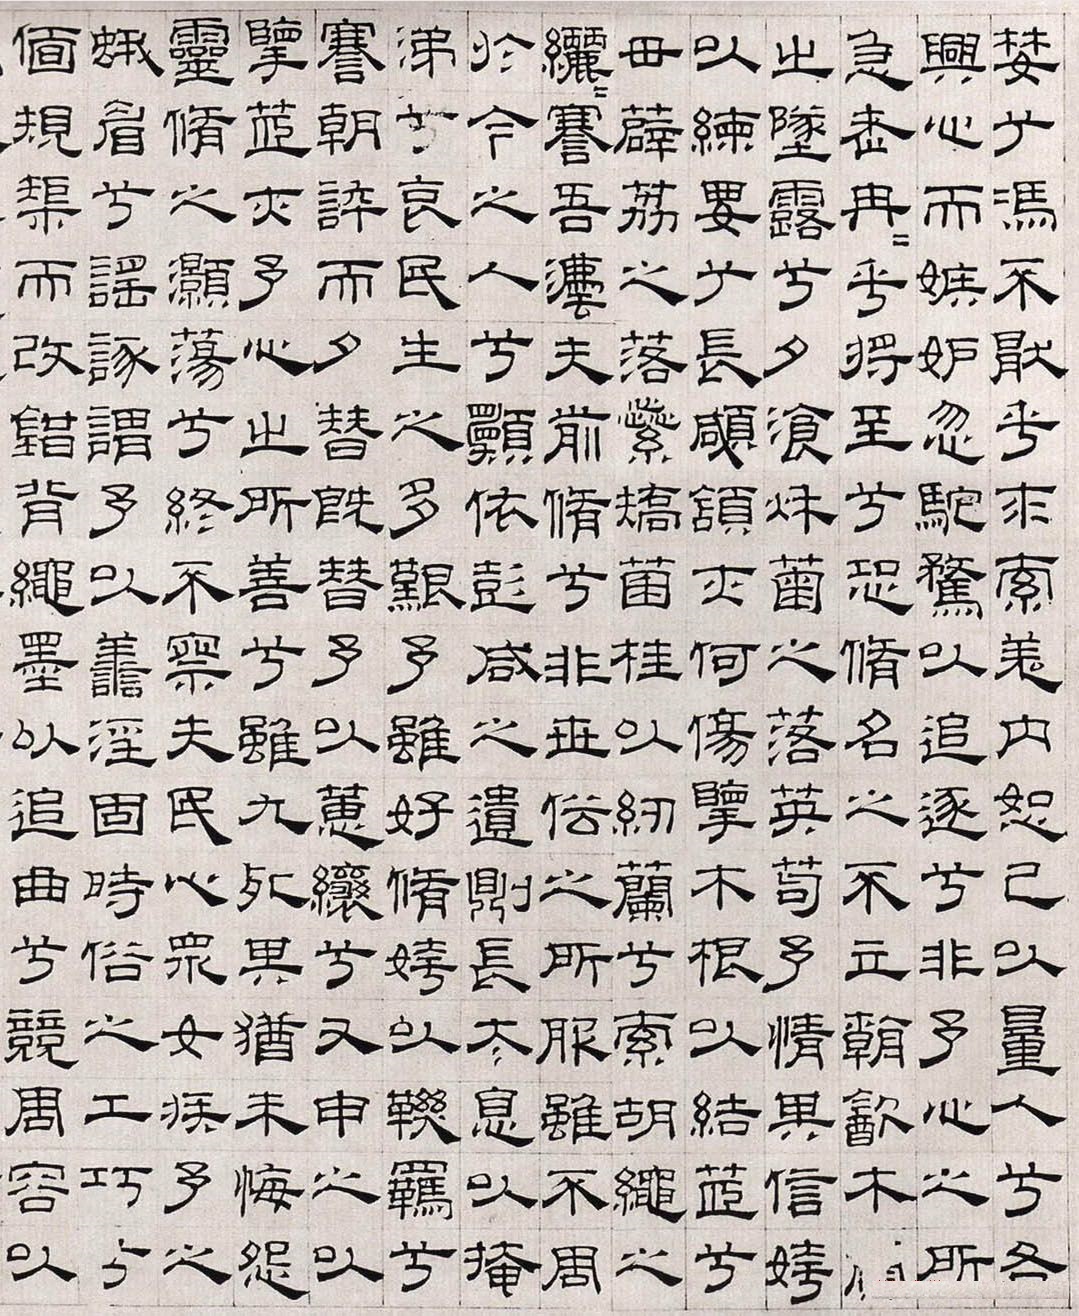 婪兮馮不猒乎求索羌内恕己以量人兮各
興心而嫉妒忽馳騖以追逐兮非予心之所
急老冉=乎將至兮恐脩名之不立朝飲木
之墜露兮夕飡秌菊之落英苟予情其信姱
以練要兮長顑頷亦何傷擥木根以結茝兮
毌薜荔之落蘂矯菌桂以紉蘭兮索胡繩之
纚=謇吾灋夫前脩兮非世俗之所服雖不周
於今之人兮願依彭咸之遺則長太息以掩
涕兮哀民生之多艱予雖好脩姱以鞿羈兮
謇朝誶而夕替既替予以蕙纕兮又申之以
擥茝亦予心之所善兮雖九死其猶未悔怨
靈脩之灝蕩兮終不察夫民心眾女疾予之
蛾眉兮謠諑謂予以譱淫固時俗之工巧兮
偭規榘而改錯背繩墨以追曲兮競周容以